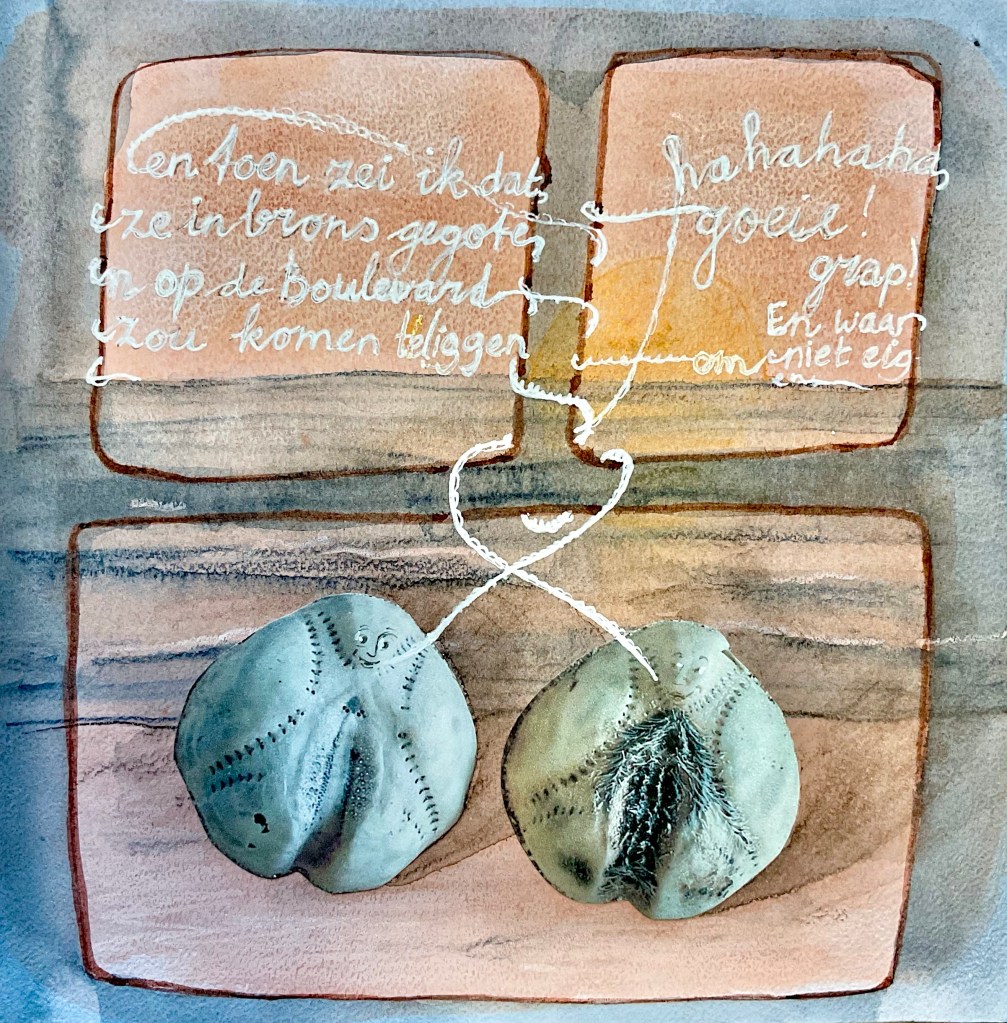 en toen zei ik dat
ze in brons gegoten
en op de Boulevard
zou komen te liggen
hahahaha
goeie!
grap!
En waar
om niet eig
en